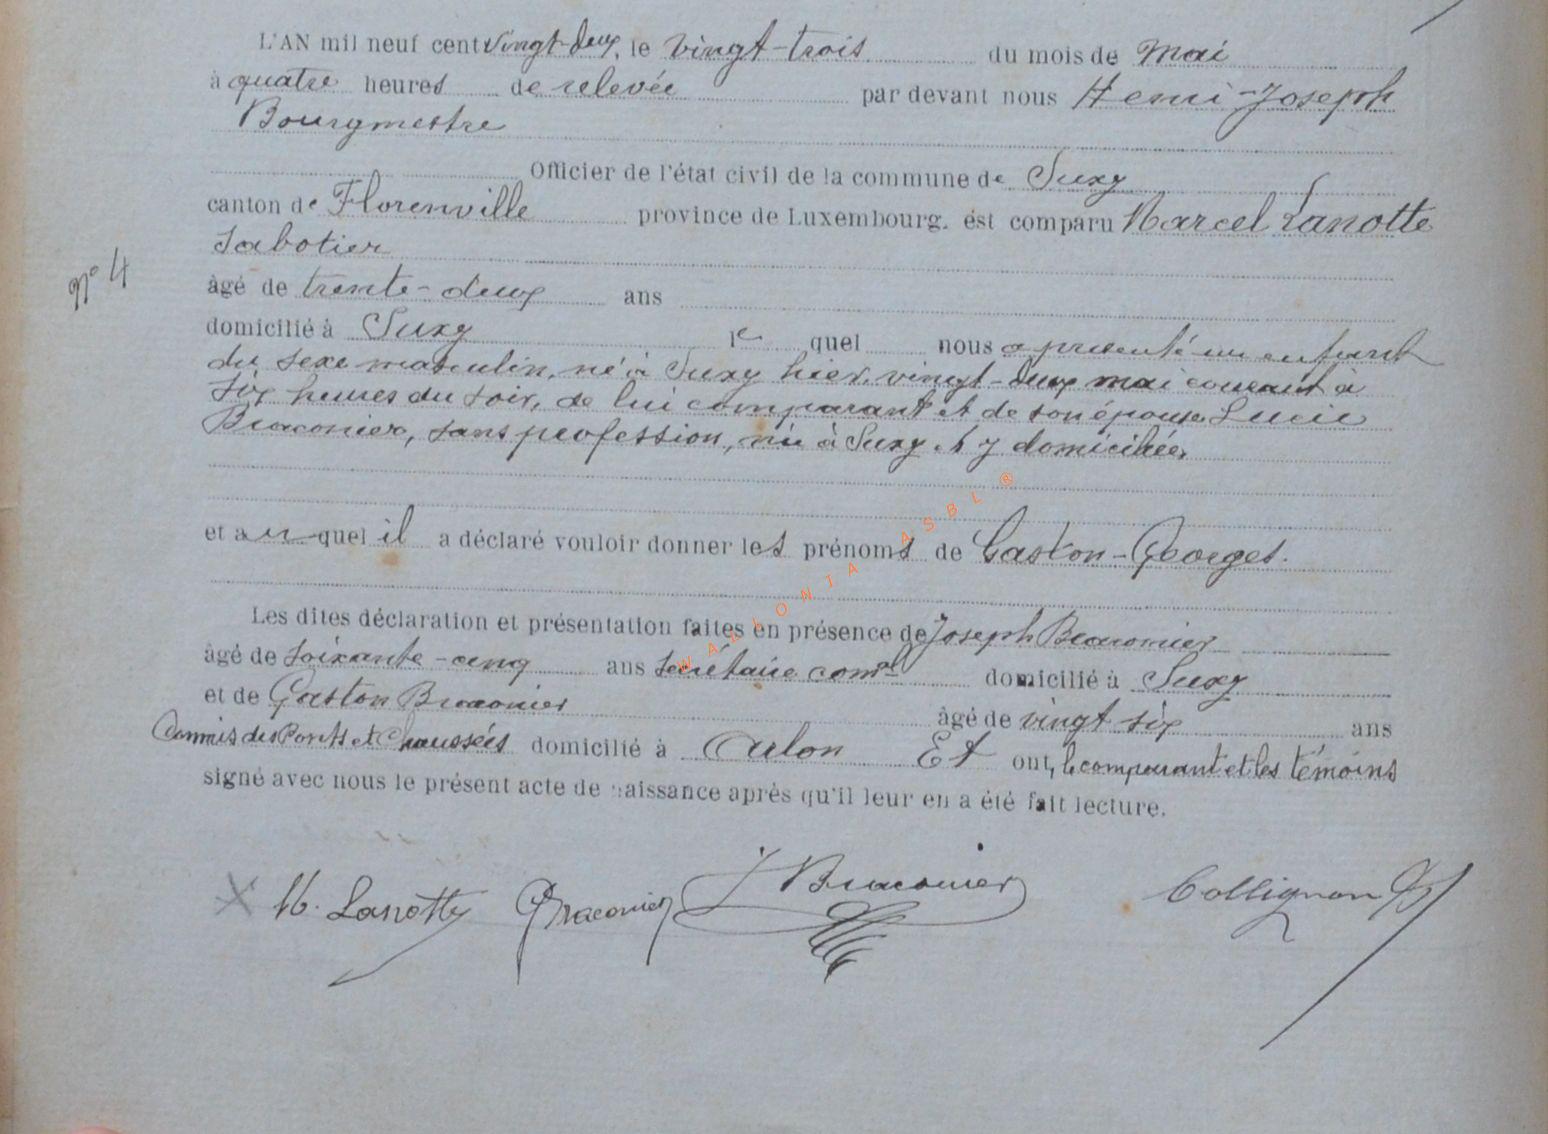 L'AN mil neuf cent vingt-deux, le vingt-trois du mois de Mai
à quatre heures de relevée par devant nous Henri-Joseph
Bourgmestre
Officier de l'état civil de la commune de Suxy
canton de Florenville province de Luxembourg. est comparu Marcel Lanotte
Sabotier
âgé de trente-deux ans
N° 4
domicilié à Suxy le quel nous a présenté un enfant
du sexe masculin, né à Suxy hier, vingt-deux mai courant à
six heures du soir, de lui comparant et de son épouse Lucie
Braconier, sans profession, née à Suxy et y domiciliée,
et auquel il a déclaré vouloir donner les prénoms de Gaston-Georges.
Les dites déclaration et présentation faites en présence de Joseph Braconier
âgé de soixante-cinq ans secrétaire comal domicilié à Suxy
et de Gaston Braconier âgé de vingt six ans
Commis des Ponts et Chaussées domicilié à Arlon Et ont, le comparant et les témoins
signé avec nous le présent acte de naissance après qu'il leur en a été fait lecture.
M. Lanotte GBraconier J Braconier Collignon HJ
WALLONIA ASBL ®